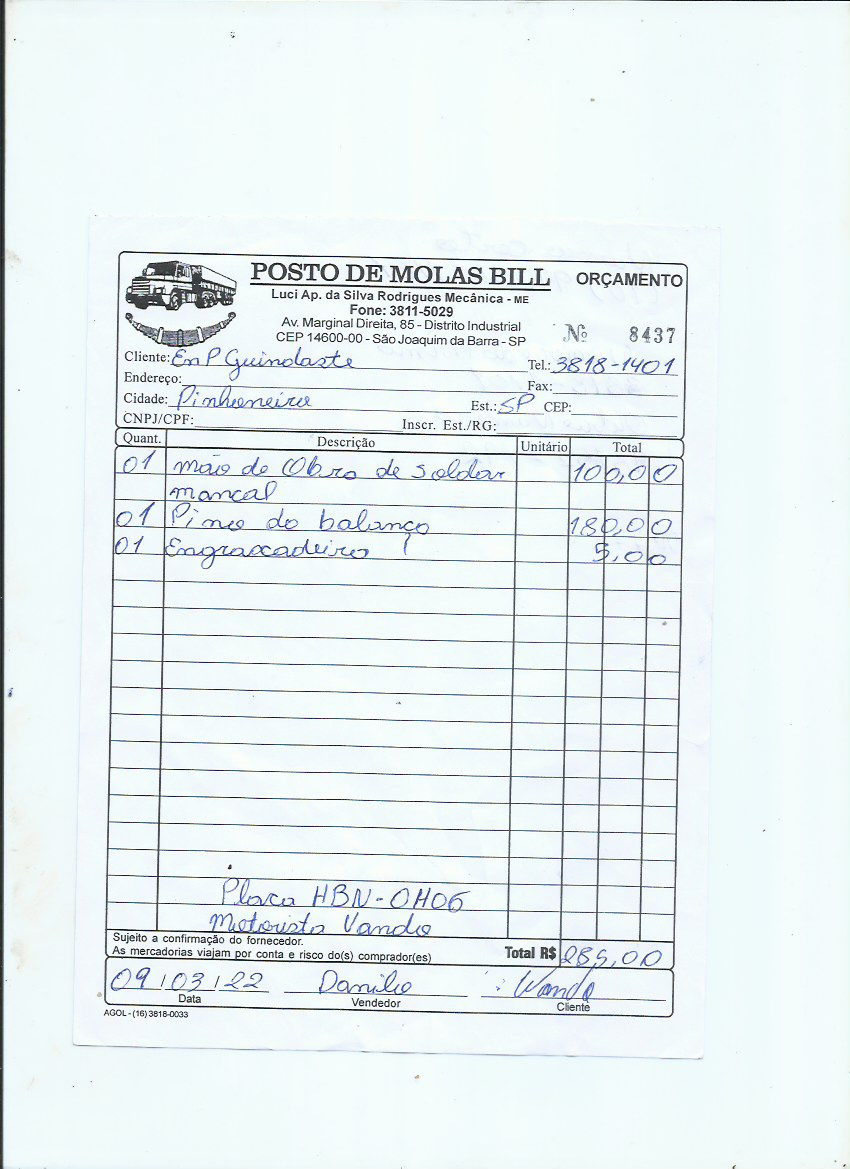 POSTO DE MOLAS BILL ORÇAMENTO
Luci Ap. da Silva Rodrigues Mecânica - ME
Fone: 3811-5029
Av. Marginal Direita, 85 - Distrito Industrial
CEP 14600-00 - São Joaquim da Barra - SP
Nº 8437
Cliente: EnP Guindaste Tel.: 3818-1401
Endereço: Fax:
Cidade: Pinhoneiro Est.: SP CEP:
CNPJ/CPF: Inscr. Est./RG:
Quant. Descrição Unitário Total
01 mão de Obra de soldar 100,00
mancal
01 Pino do balanço 180,00
01 Engraxadeira 5,00
Placa HBN-0H06
Motorista Vando
Sujeito a confirmação do fornecedor.
As mercadorias viajam por conta e risco do(s) comprador(es) Total R$ 285,00
09/03/22 Danilo Wando
Data Vendedor Cliente
AGOL - (16) 3818-0033